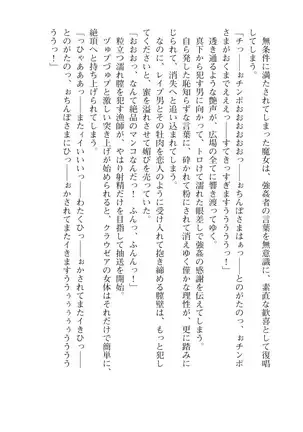 無条件に満たされてしまった魔女は、強姦者の言葉を無意識に、素直な歓喜として復唱
してしまう。
「チっ――おチンポおおおおおっ――とのがたの、おチンポ
さまがおくまでえええっ――すてきっすぎますうううううっ!」
するような艶声が、広場の全てに響き渡ってゆく。
真下から犯す男に向かって、トロけて濡れた眼差しで強姦の感謝を伝えてしまう。
自ら発した恥知らずな言葉に、砕かれて粉にされて消えゆく僅かな理性が、更に踏みに
じられて、消失へと追い込まれてしまう。
なのに、レイプ男とその牡肉を恋人のように受け入れて抱き締める膣壁は、もっと犯し
てくださいと、蜜を溢れさせて媚びを打っていた。
「おおおっ、なんて絶品のマンコなんだっ! ふんっ、ふんんっ!」
粒立つ濡れ膣を犯す漁師が、やはり射精だけを目指して抽送を開始。
ヅュプヅュプと激しい突き上げが始められると、クラウゼアの女体はそれだけで簡単に、
絶頂へと持ち上げられてしまう。
「っひゃあああっ――またィイいいいっ――わたくひっ――おかされてまたイきひっ――
とのがたのっ、おちんぽさまにひっ――おかされてまたイきますうううぅぅぅぅぅううう
ううっ!」